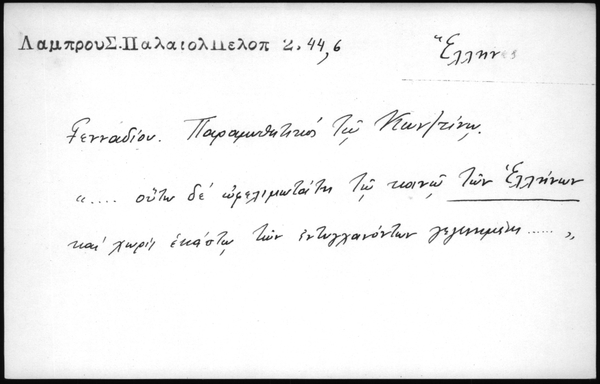 ΛαμπρουΣ.ΠαλαιολΠελοπ 2. 44,6
Ἕλλην
Γενναδίου. Παραμυθητικός τῷ Κων/τίνῳ.
".... οὕτω δέ ὠφελιμωτάτη τῷ κοινῷ τῶν Ἑλλήνων
καί χωρίς ἑκάστῳ τῶν ἐντυγχανόντων γεγενημένη ...... „